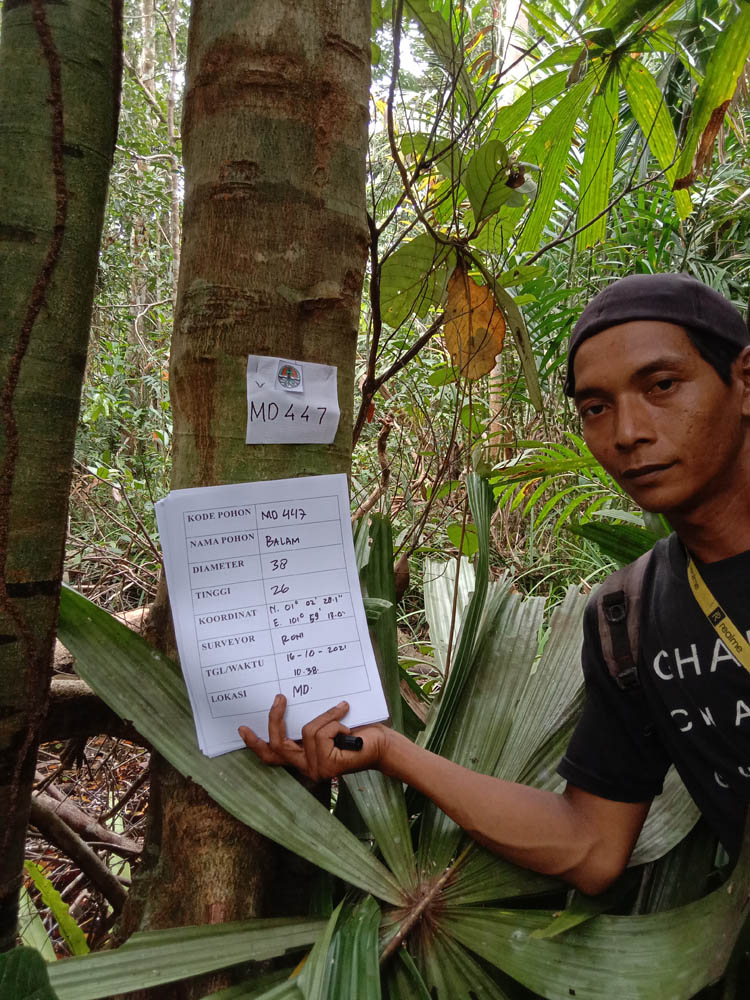 MD 447
KODE POHON MD 447
NAMA POHON BALAM
DIAMETER 38
TINGGI 26
KOORDINAT N. 01° 02' 28.1"
E. 101° 59' 13.0
SURVEYOR RONI
TGL/WAKTU 16-10-2021
10.38
LOKASI MD.
realme
CHA
CHA